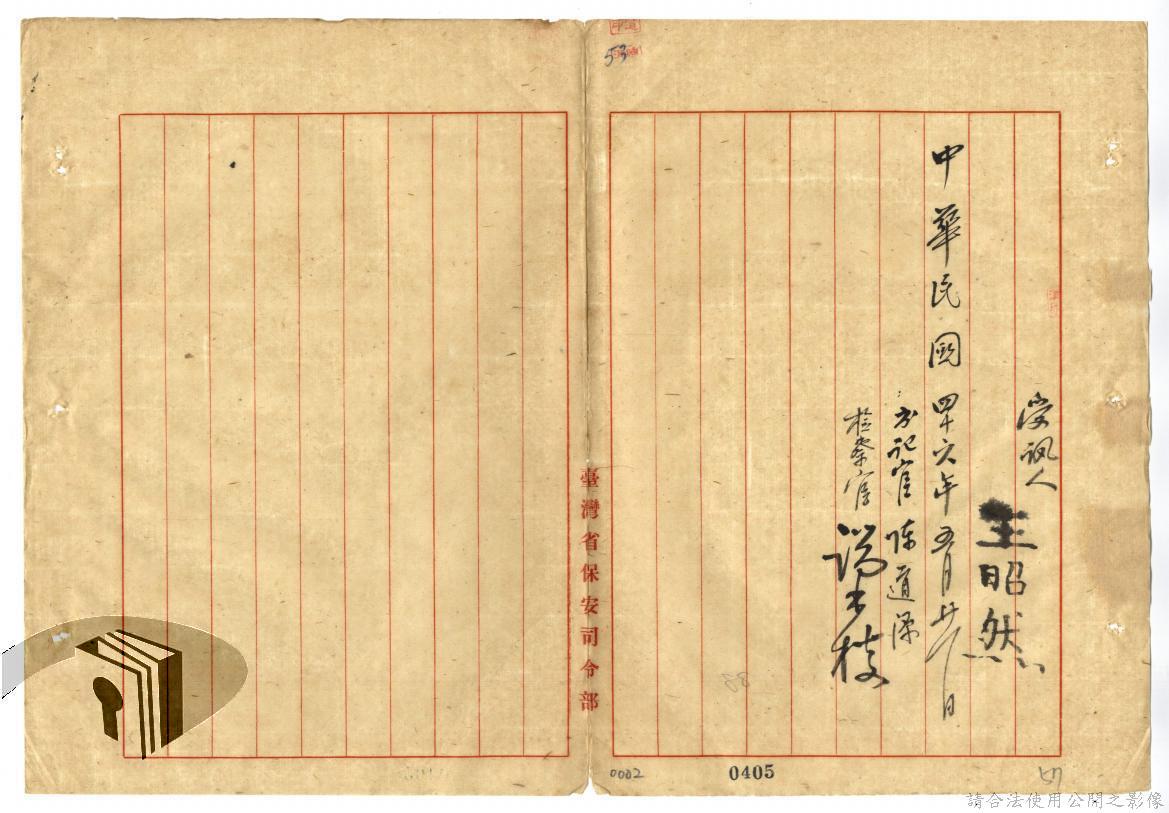 53
受訊人 王昭然
中華民國四十六年五月廿八日
書記官 陳道深
檢察官
臺灣省保安司令部
0002
0405
57
請合法使用公開之影像